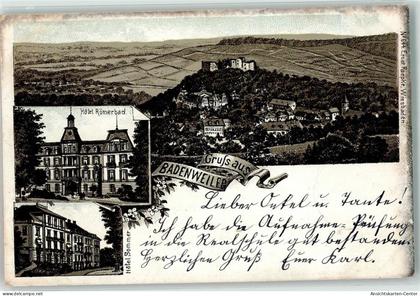 Hôtel Römerbad.
Gruss aus
BADENWEILER
Hôtel Sommer
Lieber Onkel u. Tante!
Ich habe die Aufnahme-Prüfung
in die Realschule gut bestanden.
Herzlichen Gruß Euer Karl.
www.ansichtskarten-center.de
Ansichtskarten-Center